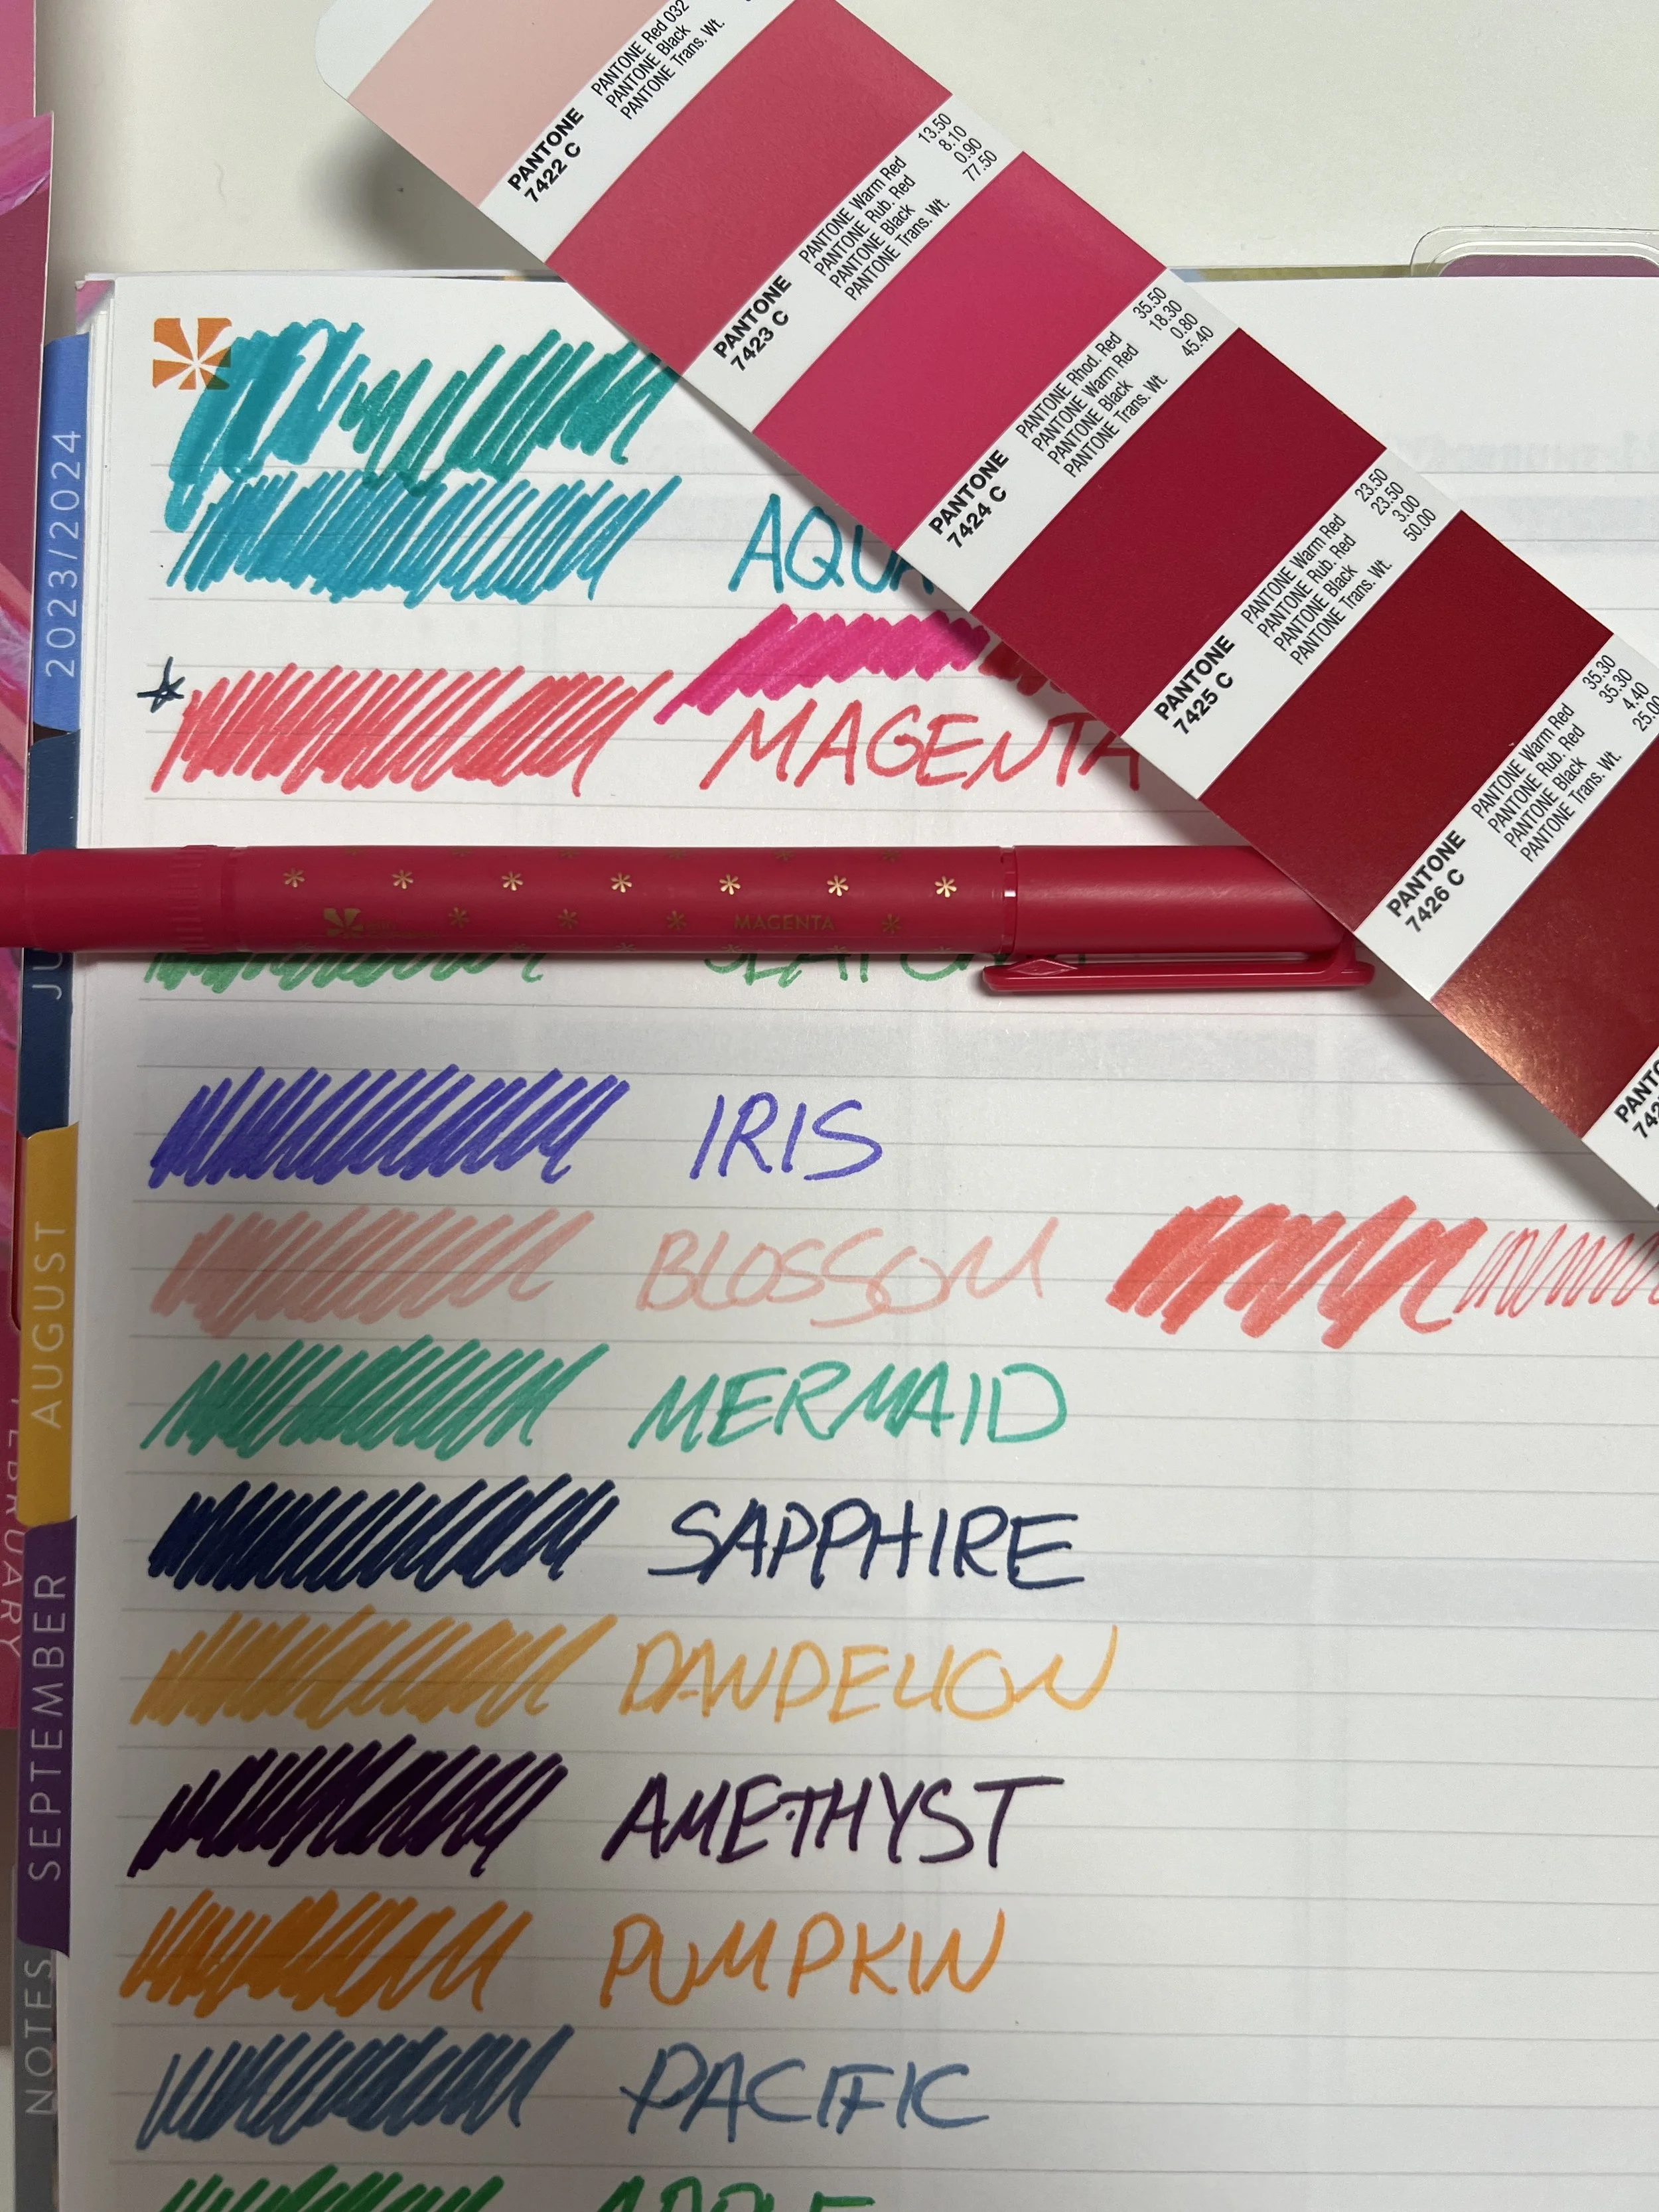 PANTONE Red 032
PANTONE Black
PANTONE Trans. Wt.
PANTONE
7422 C
PANTONE Warm Red 13.50
PANTONE Rub. Red 8.10
PANTONE Black 0.90
PANTONE Trans. Wt. 77.50
PANTONE
7423 C
PANTONE Rhod. Red 35.50
PANTONE Warm Red 18.30
PANTONE Black 0.80
PANTONE Trans. Wt. 45.40
PANTONE
7424 C
PANTONE Warm Red 23.50
PANTONE Rub. Red 23.50
PANTONE Black 3.00
PANTONE Trans. Wt. 50.00
PANTONE
7425 C
PANTONE Warm Red 35.30
PANTONE Rub. Red 35.30
PANTONE Black 4.40
PANTONE Trans. Wt. 25.00
PANTONE
7426 C
2023/2024
AUGUST
SEPTEMBER
NOTES
FEBRUARY
AQUA
MAGENTA
MAGENTA
IRIS
BLOSSOM
MERMAID
SAPPHIRE
DANDELION
AMETHYST
PUMPKIN
PACIFIC
APPLE